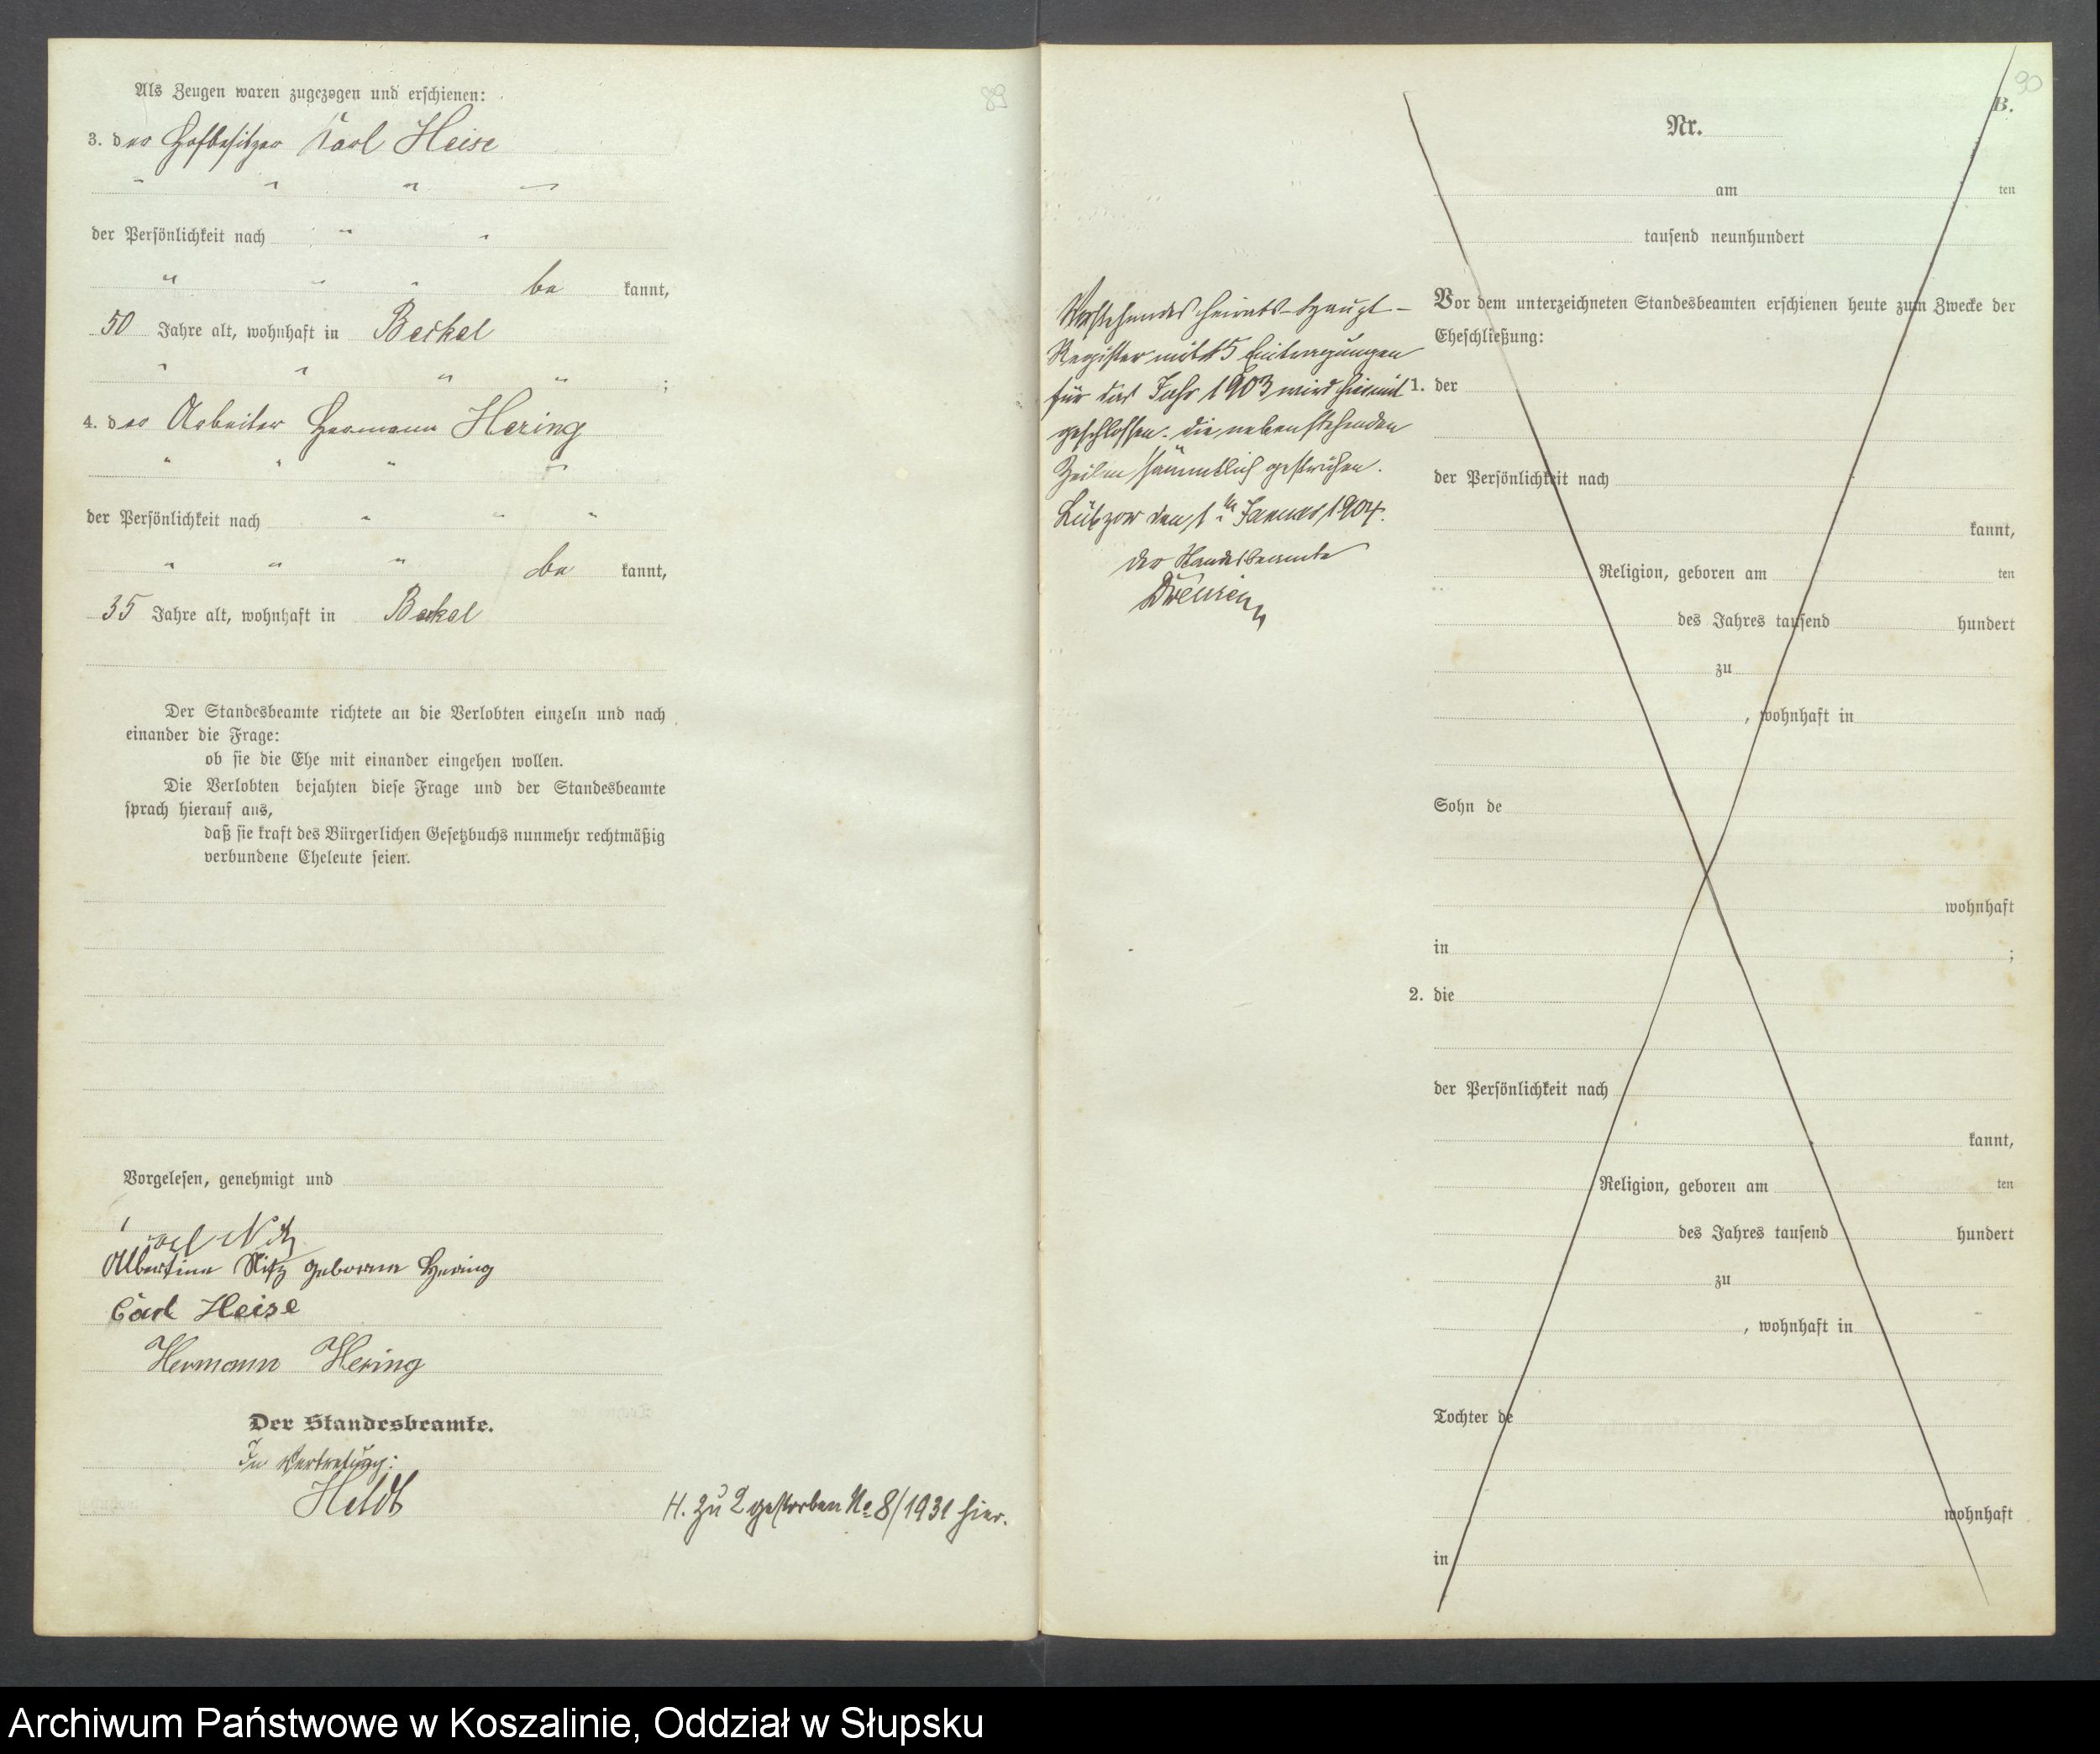 Als Zeugen waren zugezogen und erschienen:
3. der Hofbesitzer Karl Heise
der Persönlichkeit nach
be kannt,
50 Jahre alt, wohnhaft in Beckel
;
4. der Arbeiter Hermann Hering
der Persönlichkeit nach
be kannt,
35 Jahre alt, wohnhaft in Beckel
Der Standesbeamte richtete an die Verlobten einzeln und nach
einander die Frage:
ob sie die Ehe mit einander eingehen wollen.
Die Verlobten bejahten diese Frage und der Standesbeamte
sprach hierauf aus,
daß sie kraft des Bürgerlichen Gesetzbuchs nunmehr rechtmäßig
verbundene Eheleute seien.
Vorgelesen, genehmigt und
Nitz
Albertine Nitz geborene Hering
Carl Heise
Hermann Hering
Der Standesbeamte.
In Vertretung:
Heldt
H. zu 2 gestorben No 8/1931 hier.
89
90
B.
Nr.
am ten
tausend neunhundert
Vorstehendes Heirats-Haupt-
Register mit 15 Eintragungen
für das Jahr 1903 wird hiermit
geschlossen. Die nebenstehenden
Zeilen sämmtlich gestrichen.
Lübzow den 1ten Januar 1904.
Der Standesbeamte
Vor dem unterzeichneten Standesbeamten erschienen heute zum Zwecke der
Eheschließung:
1. der
der Persönlichkeit nach
kannt,
Religion, geboren am ten
des Jahres tausend hundert
zu
, wohnhaft in
Sohn de
wohnhaft
in ;
2. die
der Persönlichkeit nach
kannt,
Religion, geboren am ten
des Jahres tausend hundert
zu
, wohnhaft in
Tochter de
wohnhaft
in
Archiwum Państwowe w Koszalinie, Oddział w Słupsku